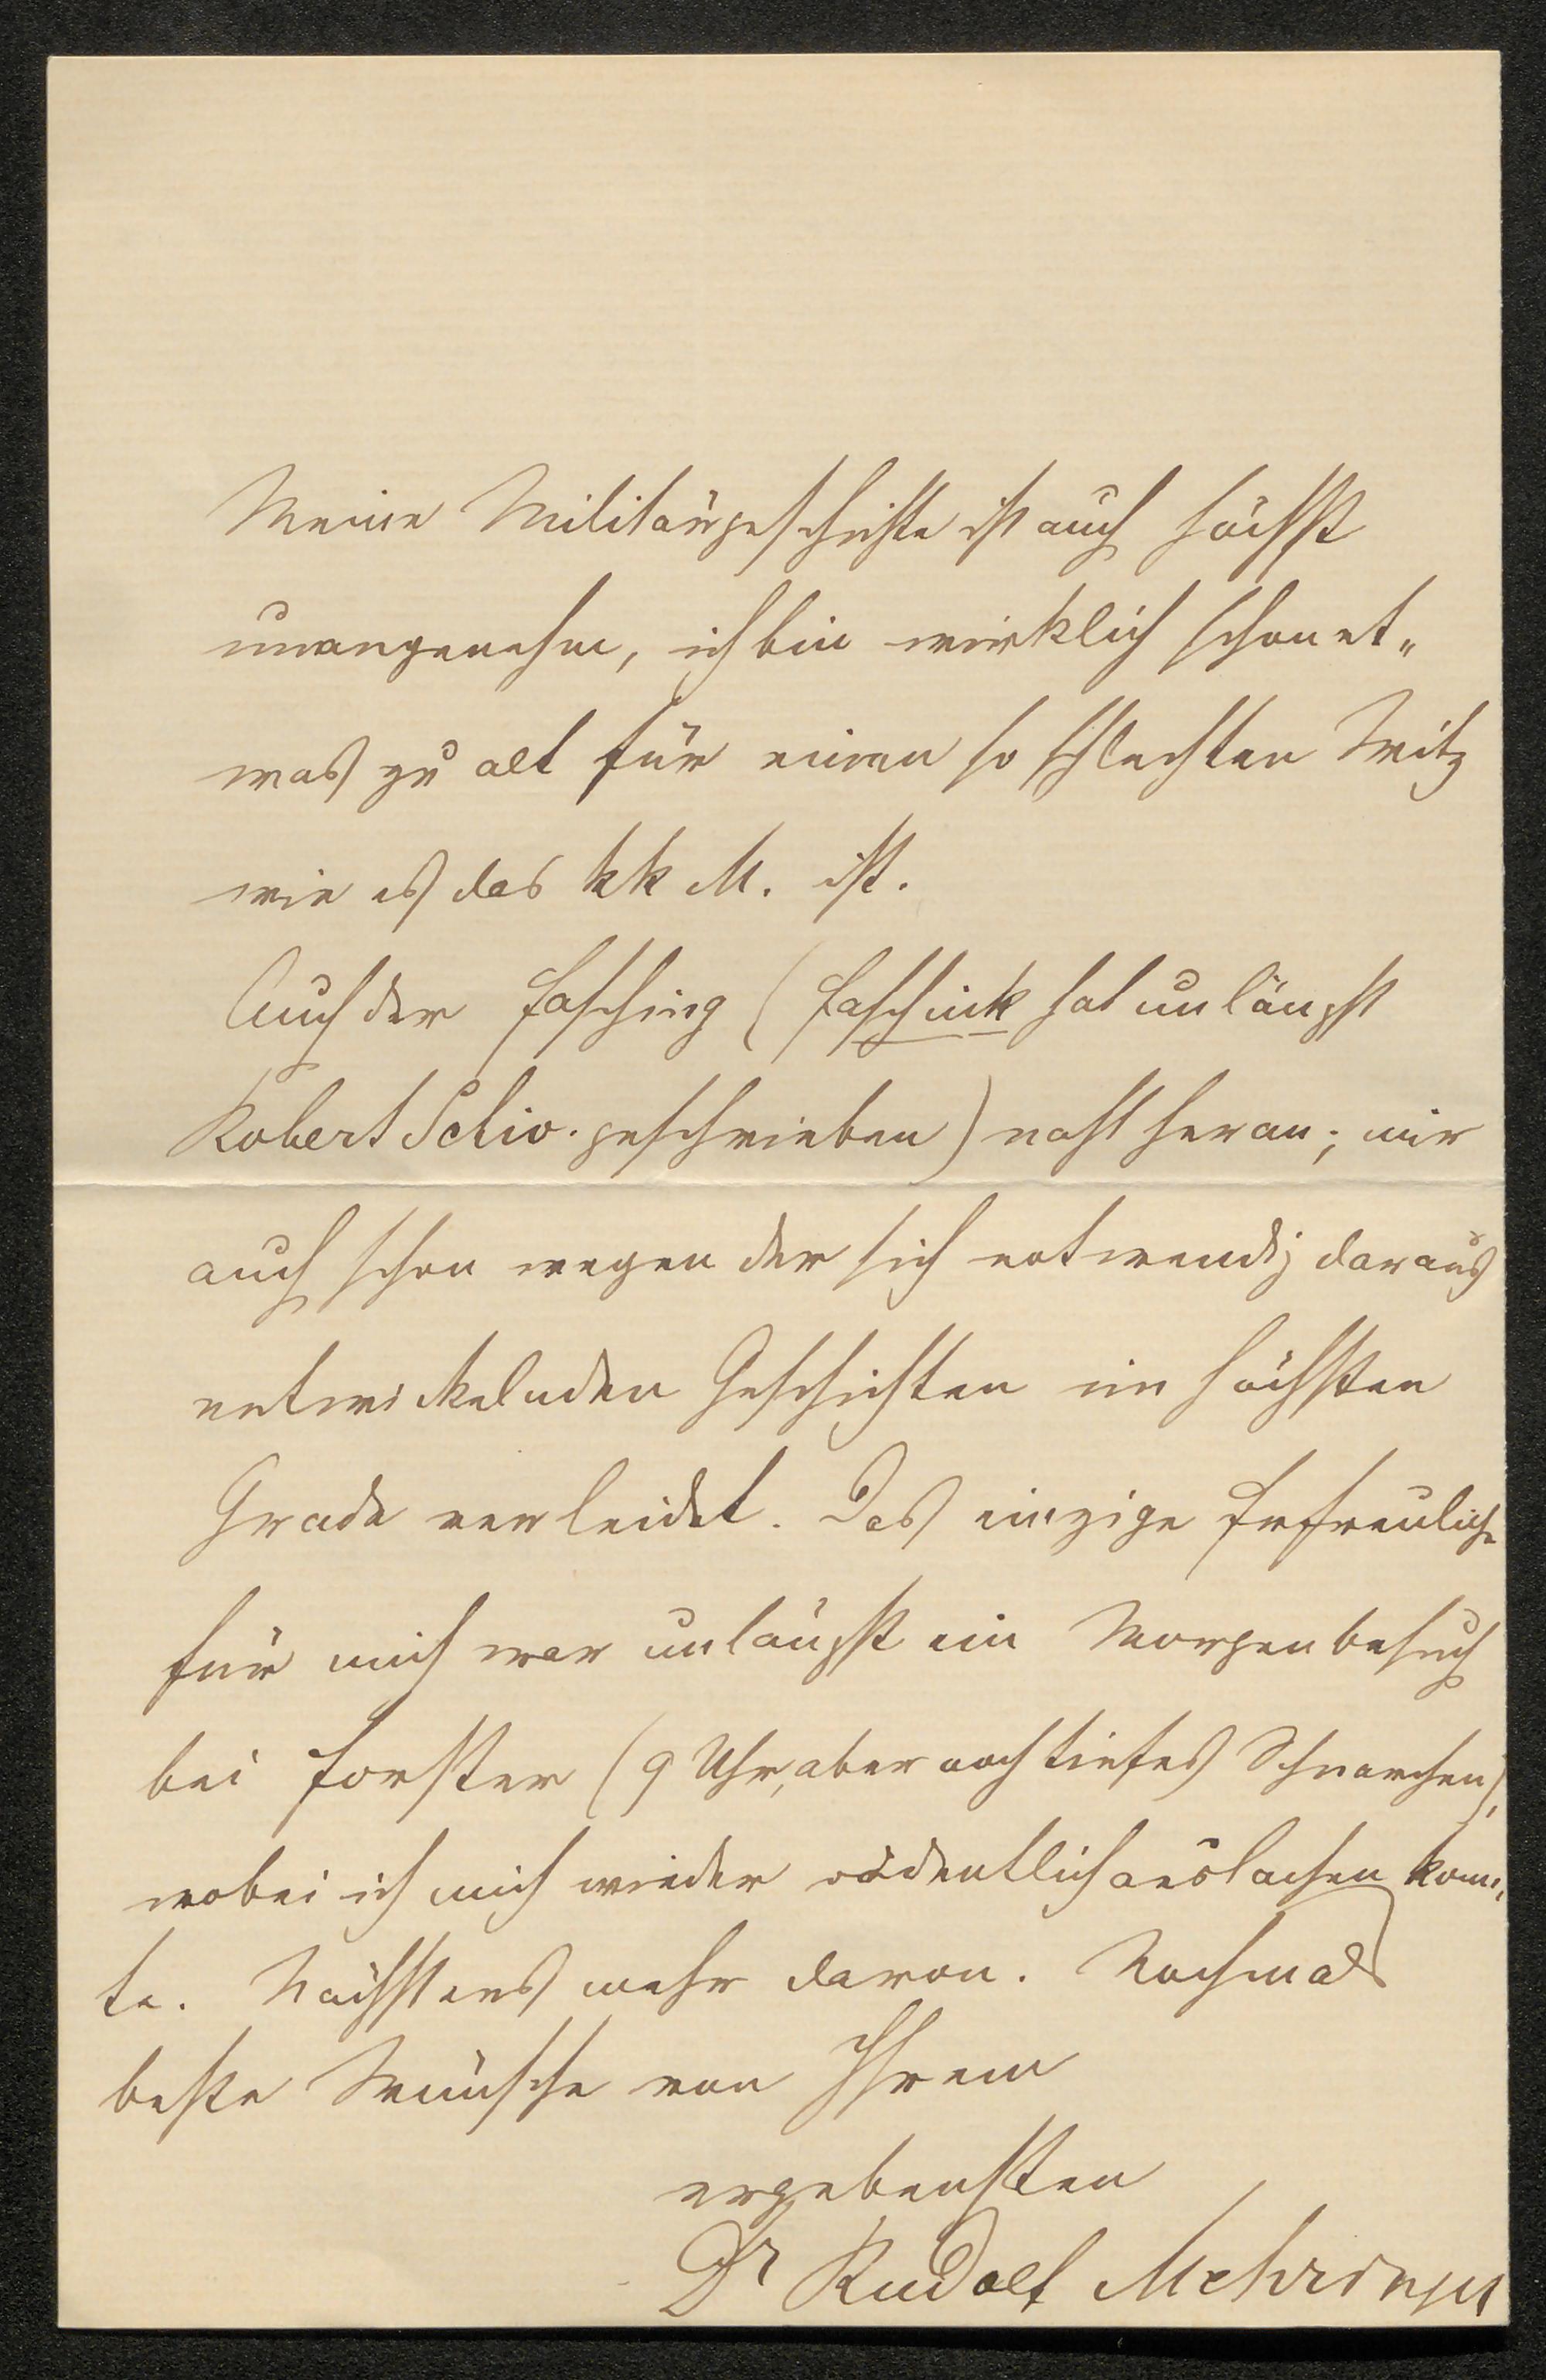 Meine Militärgeschichte ist auch höchst
unangenehm, ich bin wirklich schon et-
was zu alt für einen so schlechten Witz
wie es das kk M. ist.
Auch der Fasching (Faschink hat unlängst
Robert Schiv. geschrieben) naht heran; mir
auch schon wegen der sich notwendig daraus
entwickelnden Geschichten im höchsten
Grade verleidet. Das einzige Erfreuliche
für mich war unlängst ein Morgenbesuch
bei Forster (9 Uhr, aber noch tiefes Schnarchen),
wobei ich mich wieder ordentlich auslachen konn-
te. Nächstens mehr davon. Nochmals
beste Wünsche von Ihrem
ergebensten
Dr Rudolf Mehringer